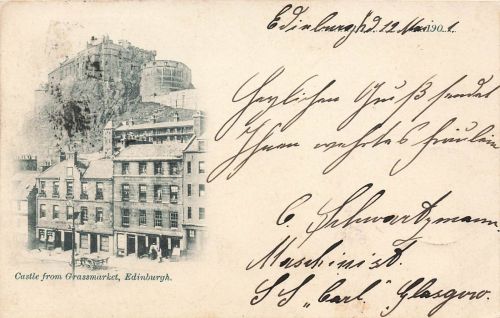 Edinburgh d. 12 Mai 1901.
Herzlichen Gruß sendet
Ihnen wehrtes Fräulein
C. Schwartzmann.
Maschinist.
SS „Carl" Glasgow.
Castle from Grassmarket, Edinburgh.